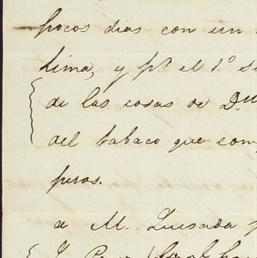 pocos dias con un
Lima, y pª el 1.º
de las cosas de D.n
del tabaco que com
puros.
a M. Quesada